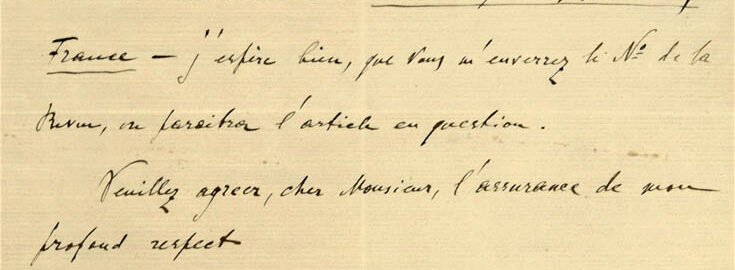 France — j'espère bien, que vous m'enverrez le Nº de la
Revue, où paraitra l'article en question.
Veuillez agreer, cher Monsieur, l'assurance de mon
profond respect